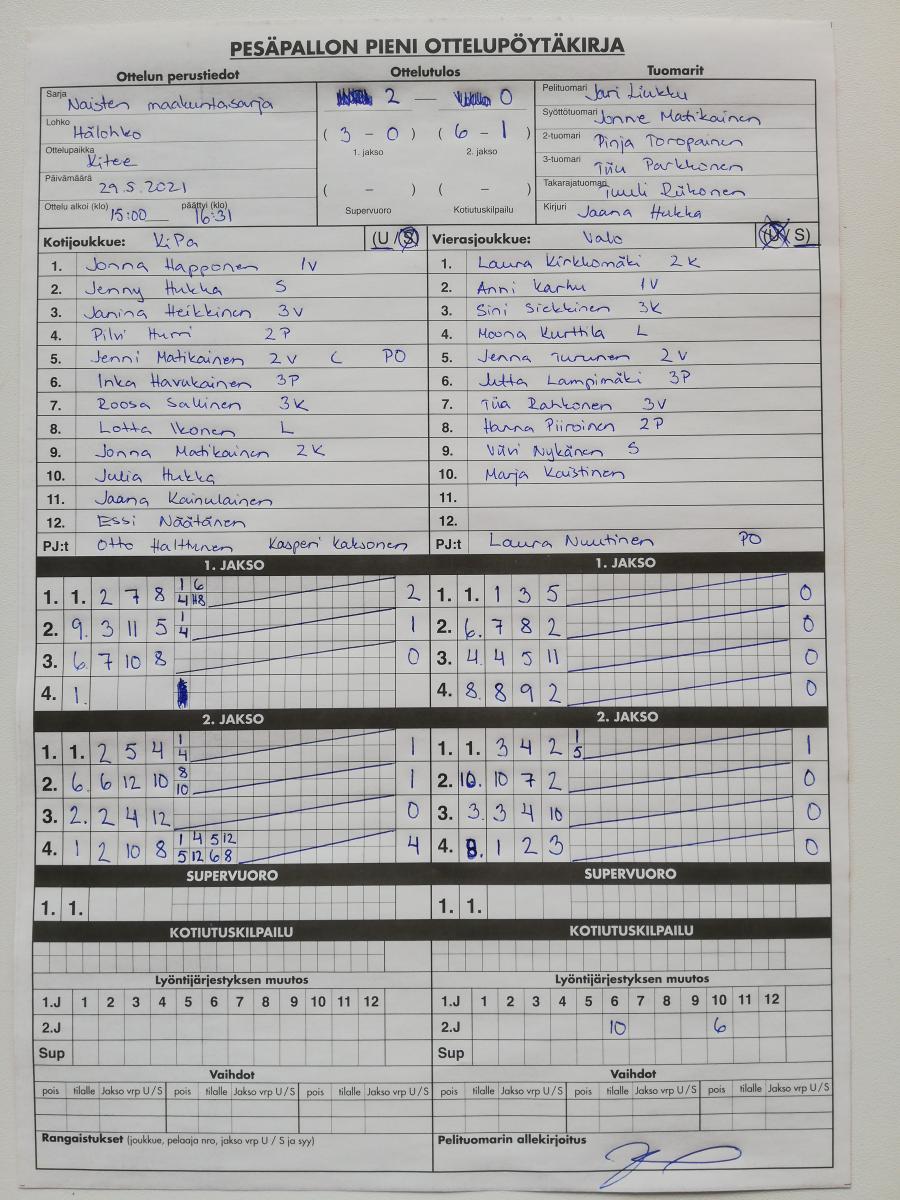 PESÄPALLON PIENI OTTELUPÖYTÄKIRJA
Ottelun perustiedot Ottelutulos Tuomarit
Sarja Naisten maakuntasarja
Lohko Itälohko
Ottelupaikka Kitee
Päivämäärä 29.5.2021
Ottelu alkoi (klo) 15:00 päättyi (klo) 16:31
2 — 0
( 3 - 0 ) ( 6 - 1 )
1. jakso 2. jakso
( - ) ( - )
Supervuoro Kotiutuskilpailu
Pelituomari Jari Liukku
Syöttötuomari Jonne Matikainen
2-tuomari Pinja Toropainen
3-tuomari Tiiu Parkkonen
Takarajatuomari Tuuli Riikonen
Kirjuri Jaana Hukka
Kotijoukkue: KiPa (U / S)
1. Jonna Happonen 1V
2. Jenny Hukka S
3. Janina Heikkinen 3V
4. Pilvi Hurri 2P
5. Jenni Matikainen 2V C PO
6. Inka Havukainen 3P
7. Roosa Sallinen 3K
8. Lotta Ikonen L
9. Jonna Matikainen 2K
10. Julia Hukka
11. Jaana Kainulainen
12. Essi Näätänen
PJ:t Otto Halttunen Kasperi Kaksonen
Vierasjoukkue: Valo (U / S)
1. Laura Kirkkomäki 2K
2. Anni Karhu 1V
3. Sini Siekkinen 3K
4. Moona Kurttila L
5. Jenna Turunen 2V
6. Jutta Lampimäki 3P
7. Tiia Rahkonen 3V
8. Hanna Piiroinen 2P
9. Viivi Nykänen S
10. Marja Kaistinen
11.
12.
PJ:t Laura Nuutinen PO
1. JAKSO
1. 1. 2 7 8 1 6 2
4 H8
2. 9. 3 11 5 1 1
4
3. 6. 7 10 8 0
4. 1.
1. JAKSO
1. 1. 1 3 5 0
2. 6. 7 8 2 0
3. 4. 4 5 11 0
4. 8. 8 9 2 0
2. JAKSO
1. 1. 2 5 4 1 1
4
2. 6. 6 12 10 8 1
10
3. 2. 2 4 12 0
4. 1 2 10 8 1 4 5 12 4
5 12 6 8
2. JAKSO
1. 1. 3 4 2 1 1
5
2. 10. 10 7 2 0
3. 3. 3 4 10 0
4. 8. 1 2 3 0
SUPERVUORO
1. 1.
SUPERVUORO
1. 1.
KOTIUTUSKILPAILU
KOTIUTUSKILPAILU
Lyöntijärjestyksen muutos
1.J 1 2 3 4 5 6 7 8 9 10 11 12
2.J
Sup
Lyöntijärjestyksen muutos
1.J 1 2 3 4 5 6 7 8 9 10 11 12
2.J 10 6
Sup
Vaihdot
pois tilalle Jakso vrp U / S pois tilalle Jakso vrp U / S pois tilalle Jakso vrp U / S
Vaihdot
pois tilalle Jakso vrp U / S pois tilalle Jakso vrp U / S pois tilalle Jakso vrp U / S
Rangaistukset (joukkue, pelaaja nro, jakso vrp U / S ja syy)
Pelituomarin allekirjoitus